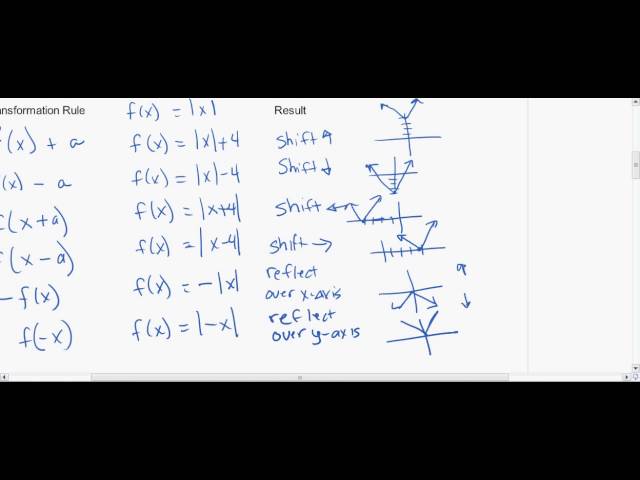 nsformation Rule f(x) = |x| Result
(x) + a f(x) = |x|+4 shift ↑
(x) - a f(x) = |x|-4 Shift ↓
f(x+a) f(x) = |x+4| shift ←
f(x-a) f(x) = |x-4| shift →
-f(x) f(x) = -|x| reflect over x-axis
f(-x) f(x) = |-x| reflect over y-axis